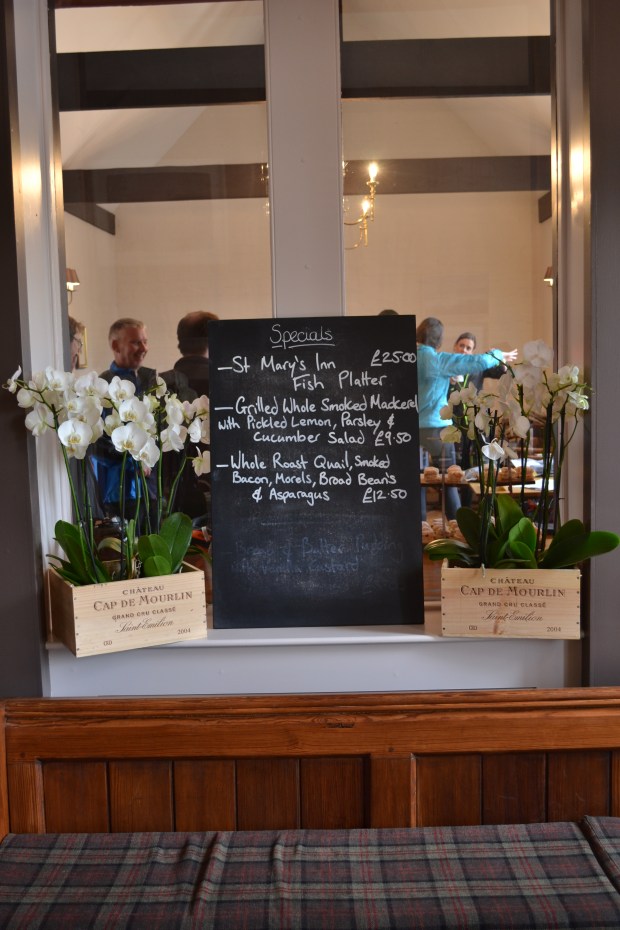 Specials
— St Mary's Inn £25.00
Fish Platter
— Grilled Whole Smoked Mackerel
with Pickled Lemon, Parsley &
Cucumber Salad £9.50
— Whole Roast Quail, Smoked
Bacon, Morels, Broad Bean's
& Asparagus £12.50
Bread & Butter Pudding
Vanilla Custard
CHÂTEAU
CAP DE MOURLIN
GRAND CRU CLASSÉ
Saint-Emilion
2004
CHÂTEAU
CAP DE MOURLIN
GRAND CRU CLASSÉ
Saint-Emilion
2004